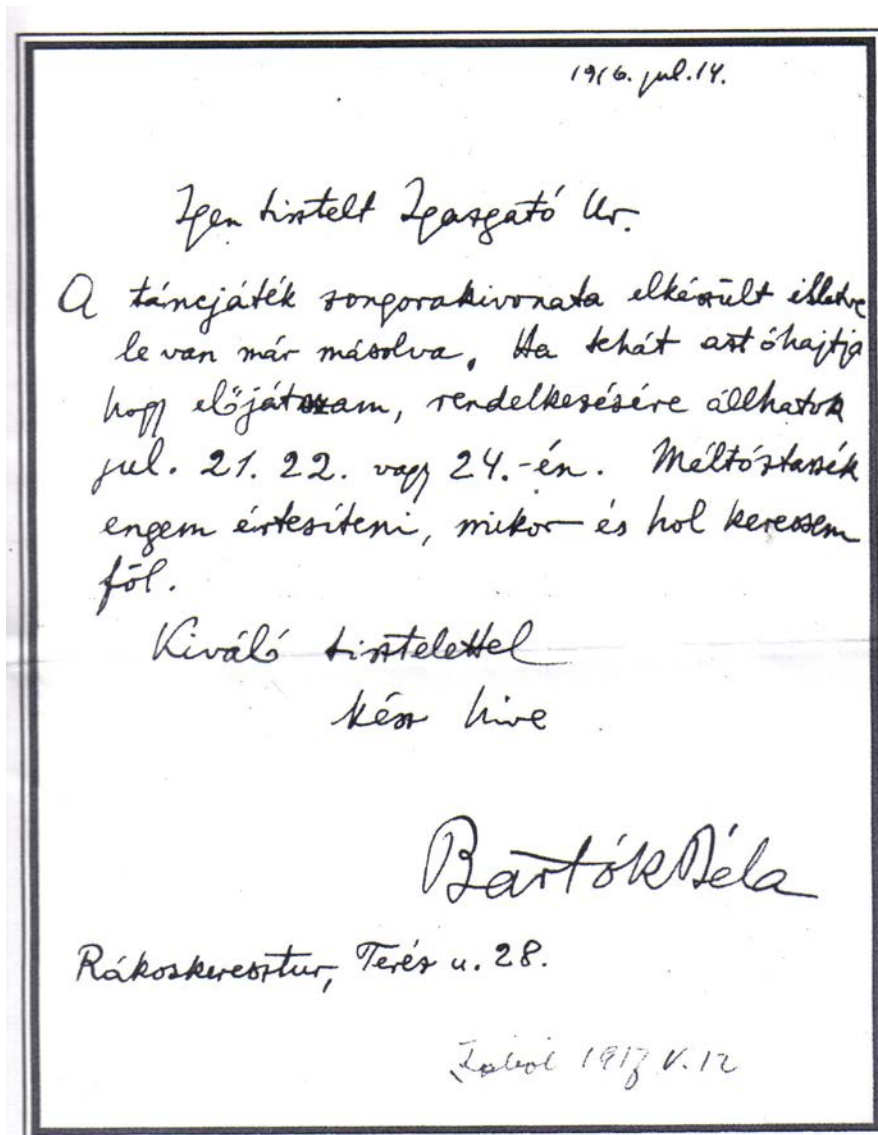 1916. jul. 14.
Igen tisztelt Igazgató Ur.
A táncjáték zongorakivonata elkészült illetve
le van már másolva. Ha tehát azt óhajtja
hogy előjátszam, rendelkezésére állhatok
jul. 21. 22. vagy 24.-én. Méltóztassék
engem értesíteni, mikor és hol keressem
föl.
Kiváló tisztelettel
kész hive
Bartók Béla
Rákoskeresztur, Teréz u. 28.
1917 V. 12